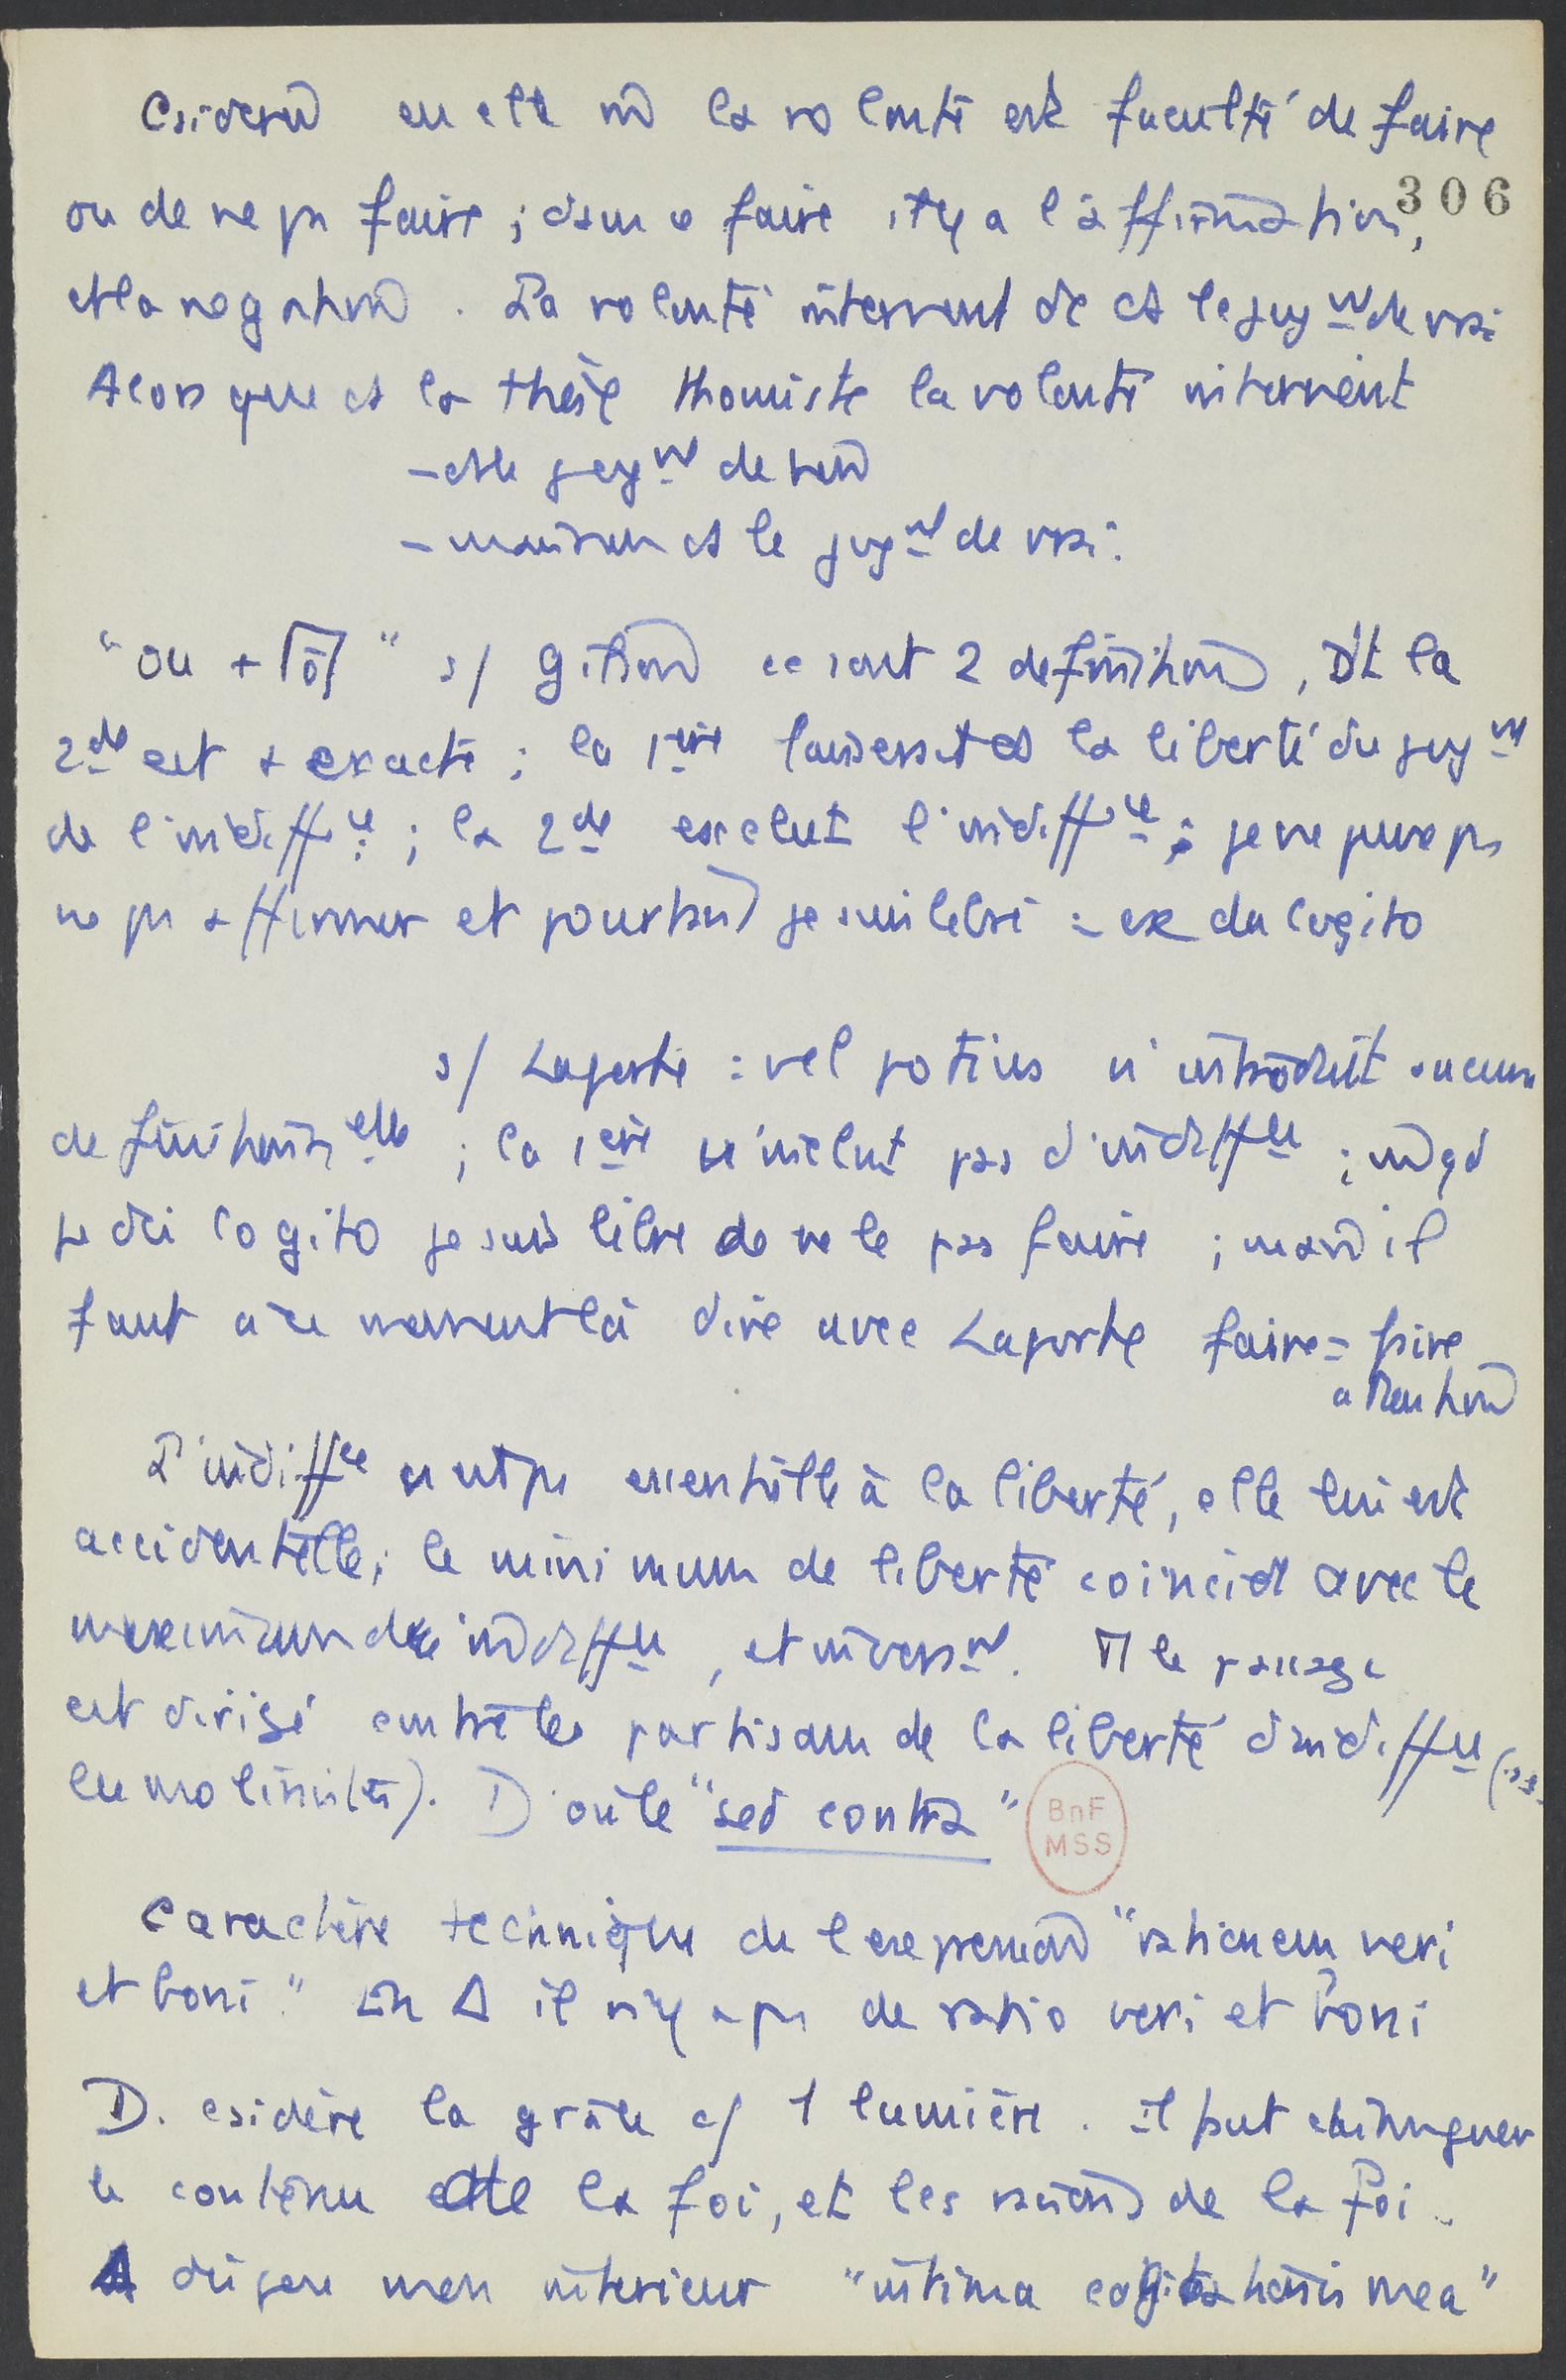 Csidérons en elle m̂ la volonté est faculté de faire
306
ou de ne ps faire ; dans ce faire il y a l'affirmation,
et la négation. La volonté intervient dc ds le jugnt de vrai
Alors que ds la thèse thomiste la volonté intervient
- ds le jugnt de bien
- mais non ds le jugnt de vrai.
"ou + tôt" s/ Gilson ce sont 2 définitions, dt la
2de est + exacte ; la 1ère laisserait ds la liberté du jugnt
de l'indiffce ; la 2de exclut l'indiffce ; je ne puis ps
ne ps affirmer et pourtant je suis libre = ex du cogito
s/ Laporte : vel potius n'introduit aucune
définition elle ; la 1ère n'inclut pas d'indiffce ; m̂ qd
je dis cogito je suis libre de ne le pas faire ; mais il
faut à ce moment là dire avec Laporte faire = faire
attention
L'indiffce n'est ps essentielle à la liberté, elle lui est
accidentelle ; le minimum de liberté coincide avec le
maximum de indiffce, et inversnt. Tt le passage
est dirigé contre les partisans de la liberté d'indiffce
les molinistes). D'où le "sed contra"
BnF
MSS
Caractère technique de l'expression "rationem veri
et boni". En Δ il n'y a ps de ratio veri et boni
D. csidère la grâce c/ 1 lumière. il faut distinguer
le contenu de la foi, et les raisons de la foi.
Δ dispose mon intérieur "intima cogitationis mea"